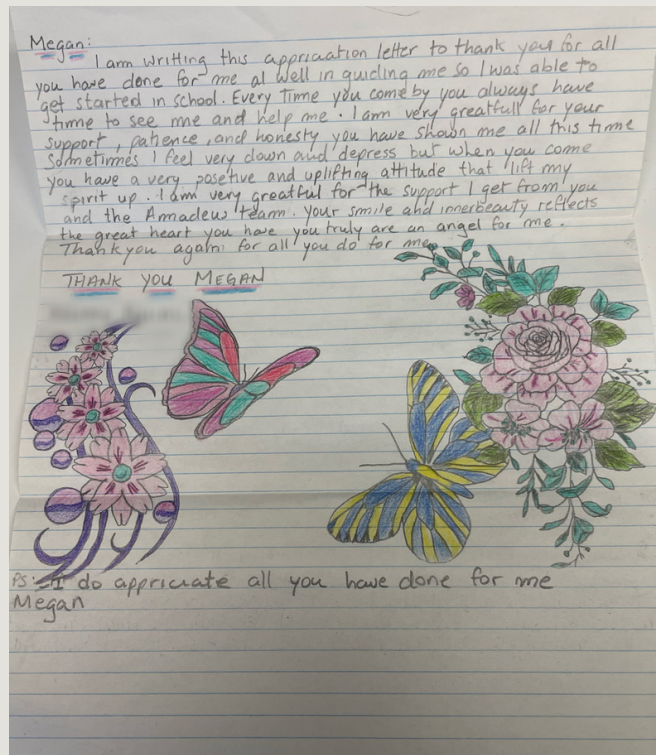 Megan:
I am writting this appricuation letter to thank you for all
you have done for me al well in guiding me so I was able to
get started in school. Every time you come by you always have
time to see me and help me. I am very greatfull for your
support, patience, and honesty you have shown me all this time
Sometimes I feel very down and depress but when you come
you have a very posetive and uplifting attitude that lift my
spirit up. I am very greatful for the support I get from you
and the Amadeus team. Your smile and innerbeauty reflects
the great heart you have you truly are an angel for me.
Thank you again for all you do for me
THANK YOU MEGAN
PS: I do appricuate all you have done for me
Megan